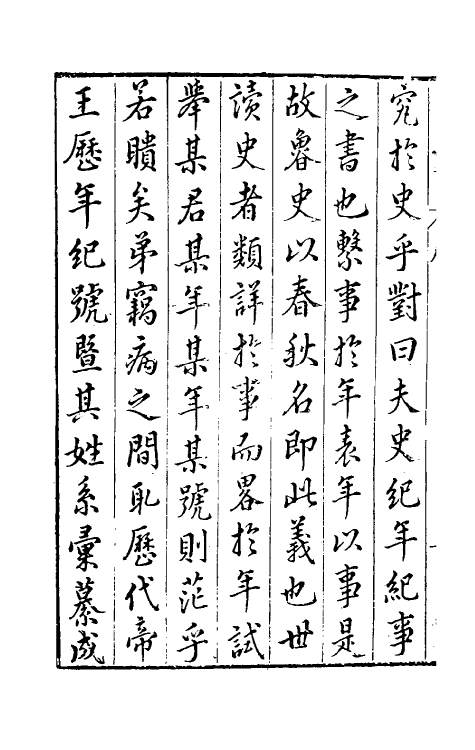 究於史乎對曰夫史紀年紀事
之書也繫事於年表年以事是
故魯史以春秋名即此義也世
讀史者類詳於事而畧於年試
舉某君某年某年某號則茫乎
若瞶矣弟竊病之間取歷代帝
王歷年紀號暨其姓系彙纂成